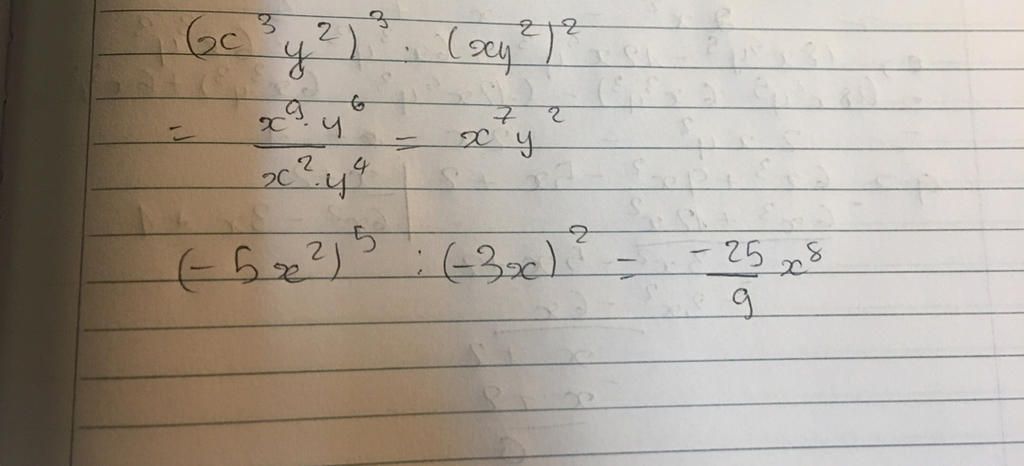 (x³y²)³ : (xy²)²
= x⁹·y⁶ / x²·y⁴ = x⁷y²
(-5x²)⁵ : (-3x)² = -25/9 x⁸